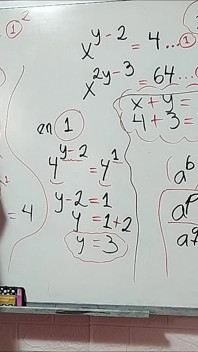 x^{y-2} = 4...①
x^{2y-3} = 64...
x + y =
4 + 3 =
en ①
4^{y-2} = 4^1
y-2 = 1
y = 1+2
y = 3
= 4
a^b
a^p
a^q